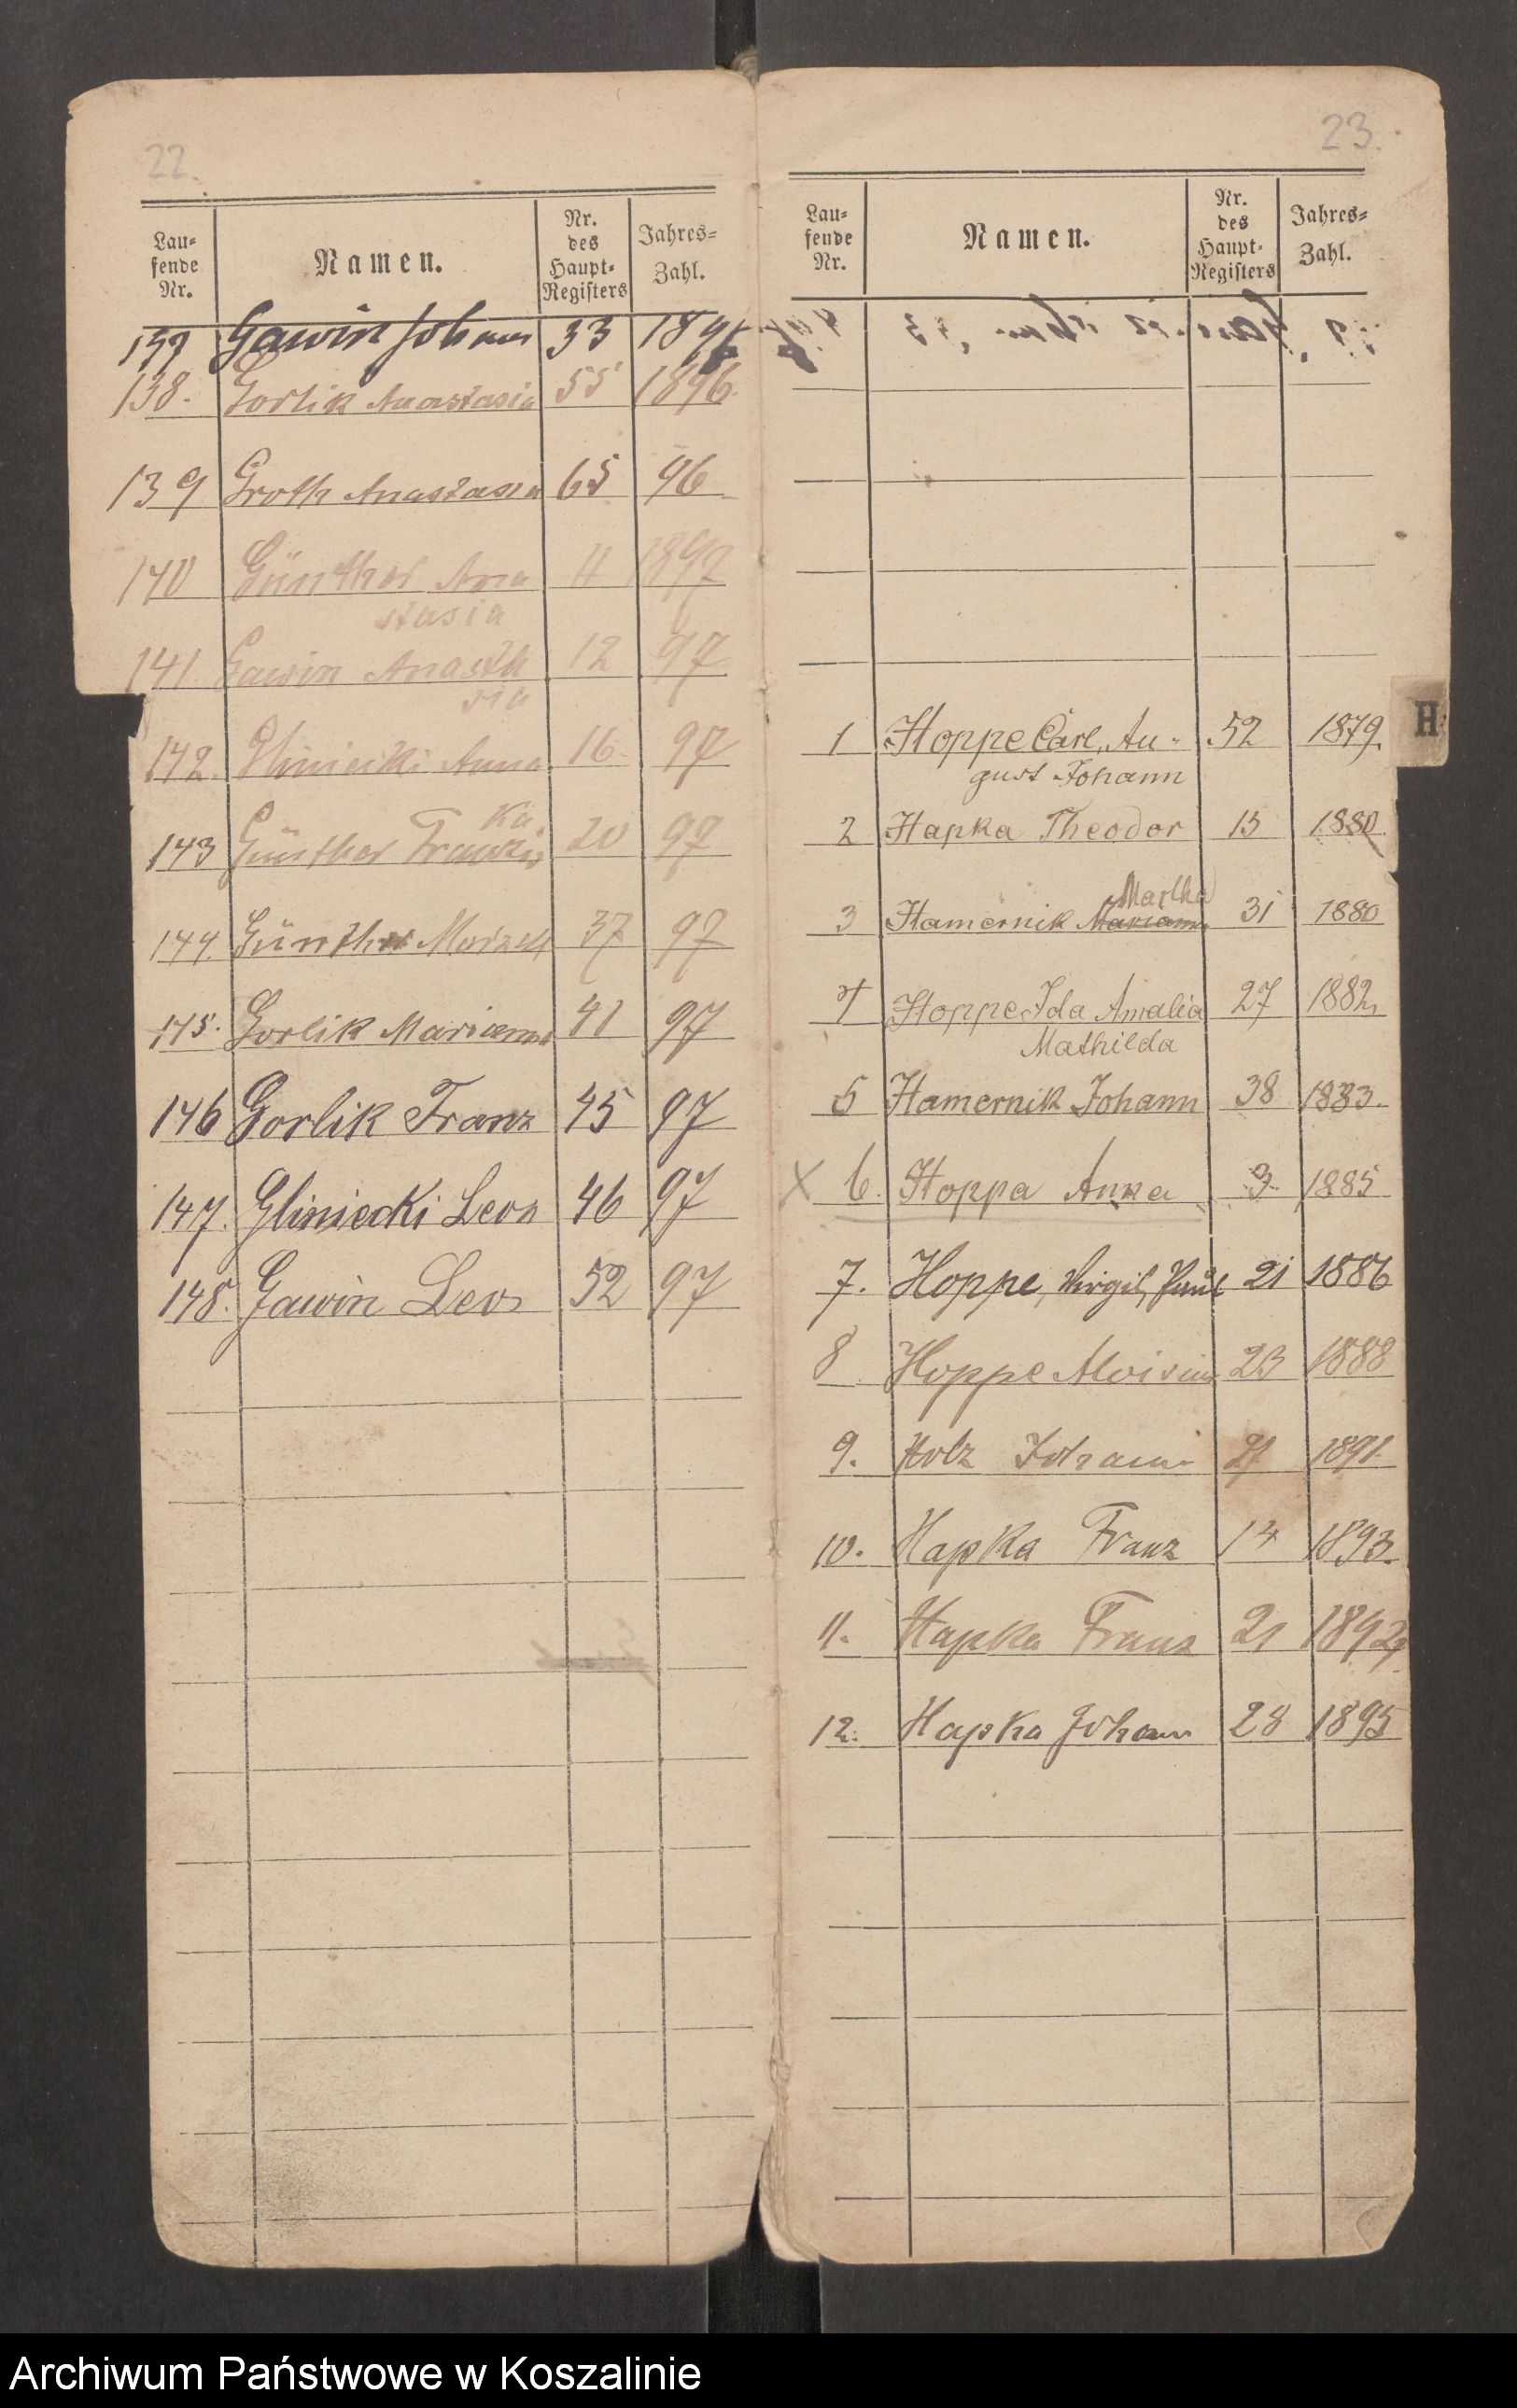 22.
Lau-
fende
Nr.
Namen.
Nr.
des
Haupt-
Registers
Jahres-
Zahl.
137 Gawin Johann 33 1896
138. Gorlik Anastasia 55 1896.
139 Groth Anastasia 65 96
140 Günther Ana 11 1897
stasia
141. Gawin Anasta 12 97
sia
142. Gliniecki Anna 16. 97
ka
143 Günther Franzis 20 97
144. Günther 37 97
145. Gorlik Marianna 41 97
146 Gorlik Franz 45 97
147. Gliniecki Leon 46 97
148. Gawin Leon 52 97
23.
Lau-
fende
Nr.
Namen.
Nr.
des
Haupt-
Registers
Jahres-
Zahl.
H
1 Hoppe Carl, Au- 52 1879.
gust Johann
2 Hapka Theodor 15 1880.
Martha
3 Hamernik Marianna 31 1880
4 Hoppe Ida Amalia 27 1882,
Mathilda
5 Hamernik Johann 38 1883.
X 6. Hoppa Anna 3 1885
7. Hoppe, Virgil, Paul 21 1886
8 Hoppe Aloisius 23 1888
9. Holz Johann 21 1891.
10. Hapka Franz 14 1893.
11. Hapka Franz 21
12. Hapka Johann 28 1895
Archiwum Państwowe w Koszalinie